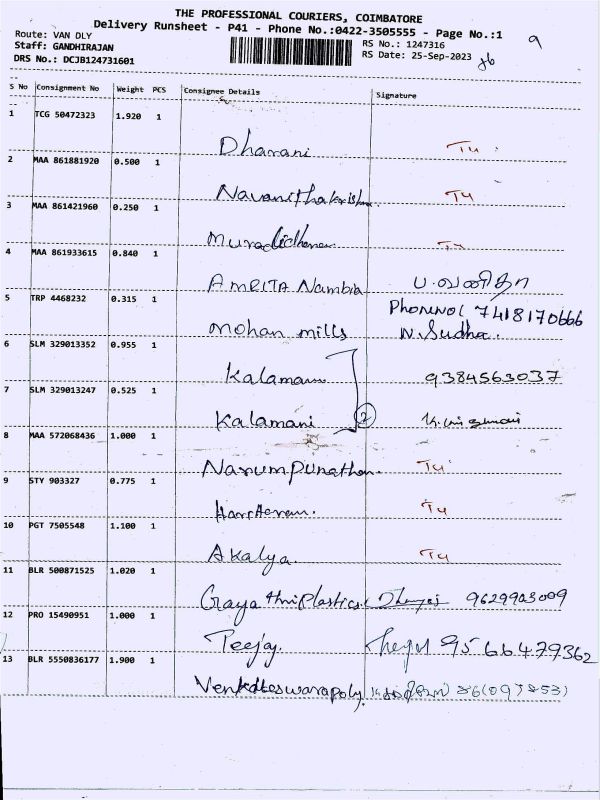 THE PROFESSIONAL COURIERS, COIMBATORE
Delivery Runsheet - P41 - Phone No.:0422-3505555 - Page No.:1
Route: VAN DLY
Staff: GANDHIRAJAN
DRS No.: DCJB124731601
RS No.: 1247316
RS Date: 25-Sep-2023
9
S No Consignment No Weight PCS Consignee Details Signature
1 TCG 50472323 1.920 1
Dharani Tu
2 MAA 861881920 0.500 1
Navanithakrishna Tu
3 MAA 861421960 0.250 1
Muralidharan
4 MAA 861933615 0.840 1
AMRITA Nambia ப.வனிதா
5 TRP 4468232 0.315 1
PhoneNo( 7418170666
mohan mills N.Sudha.
6 SLM 329013352 0.955 1
Kalamani 9384563037
7 SLM 329013247 0.525 1
Kalamani 2
8 MAA 572068436 1.000 1
Narumpunathan. Tu
9 STY 903327 0.775 1
Tu
10 PGT 7505548 1.100 1
Akalya. Tu
11 BLR 500871525 1.020 1
Gayathri Plastics 9629903009
12 PRO 15490951 1.000 1
Teejay. 9566479362
13 BLR 5550836177 1.900 1
Venkateswarapoly